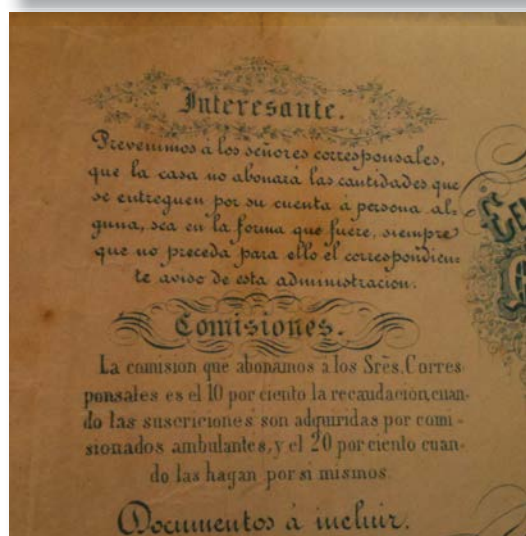 Interesante.
Prevenimos a los señores corresponsales,
que la casa no abonará las cantidades que
se entreguen por su cuenta á persona al-
guna, sea en la forma que fuere, siempre
que no preceda para ello el correspondien
te aviso de esta administracion.
Comisiones.
La comision que abonamos a los Srẽs. Corres
ponsales es el 10 por ciento la recaudacion, cuan-
do las suscriciones son adquiridas por comi-
sionados ambulantes, y el 20 por ciento cuan-
do las hagan por si mismos
Documentos á incluir.